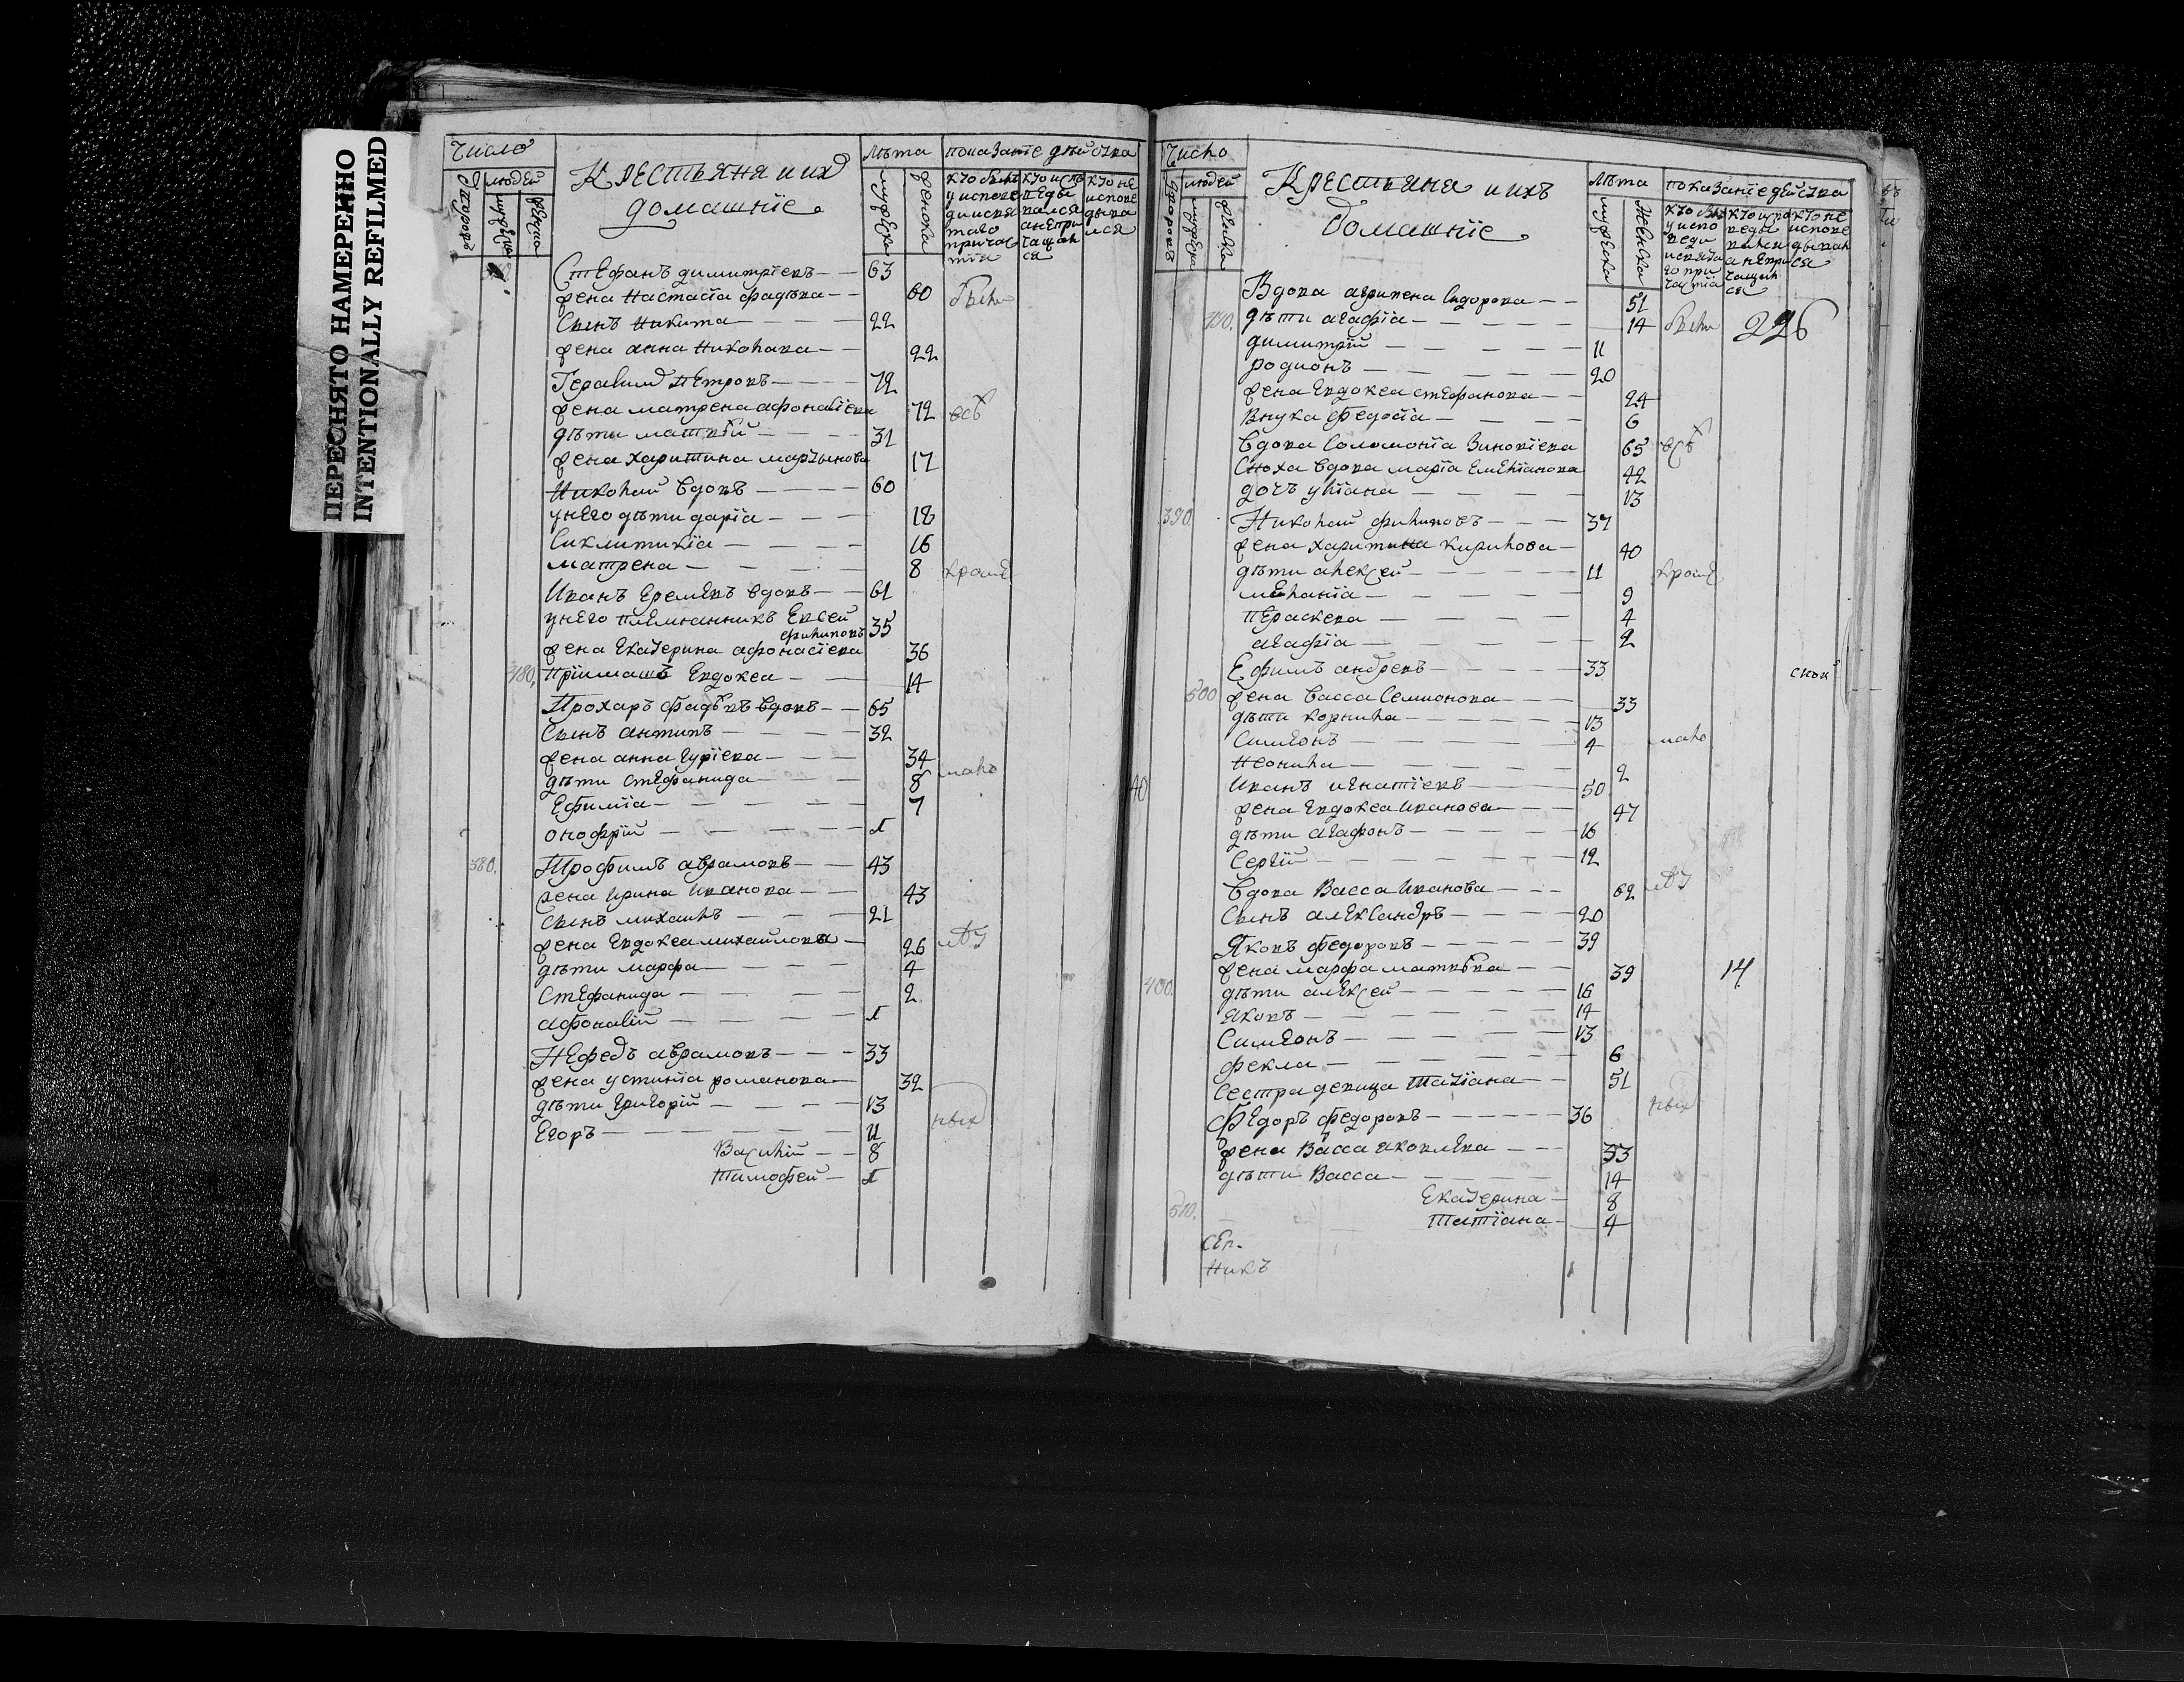 ПЕРЕСНЯТО НАМЕРЕННО
INTENTIONALLY REFILMED
Число
людей
Крестьяня и ихъ
домашніе
Лѣта
показаніе дѣйства
мужеска
женска
Стефанъ димитріевъ — 63
жена Настасіа фадѣева — 60 были
Сынъ Никита — 22
жена анна Николаева — 22
Герасимъ Петровъ — 72
жена матрена афонасіева 72 всѣ
дѣти матвѣй — 31
жена Харитина мартынова 17
Николай вдовъ — 60
у него дѣти даріа — 18
Сиклитикіа — 16
матрена — 8 кроме
Иванъ Еремѣевъ вдовъ — 61
у него племянникъ Евсей
филиповъ 35
жена Екатерина афонасіева 36
480. Пріимашъ Евдокеа — 14
Прохаръ Фадѣевъ вдовъ — 65
Сынъ антипъ — 32
жена анна гуріева — 34
дѣти стефанида — 8 мало
Ефиміа — 7
онофрій — 1
380. Трофимъ аврамовъ — 43
жена Ирина Иванова — 43
Сынъ михаилъ — 21
жена Евдокеа михайлова — 26 лѣт
дѣти марфа — 4
Стефанида — 2
Афонасій — 1
Нефедъ аврамовъ — 33
жена устиніа романова — 32
дѣти григорій — 13 ныхъ
Егоръ — 11
Василій — 8
Тимофей — 1
Число
людей
Крестьяна и ихъ
домашніе
Лѣта
показаніе действа
мужеска
женска
Вдова агрипена Сидорова — 51
дѣти агафіа — 14 были 226
димитрій — 11
родионъ — 20
жена Евдокеа стефанова — 24
Внука федосіа — 6
вдова Соломоніа Зиновіева 65 всѣ
Сноха вдова маріа Емеліанова 42
дочь уліана — 13
390. Николай филиповъ — 37
жена харитина кирилова — 40
дѣти алексей — 11 кроме
меланіа — 9
Пераскева — 4
агафіа — 2
Ефимъ андревъ — 33
500 жена васса Семионова — 33
дѣти корнила — 13
Симеонъ — 4 мало
Неонила — 2
40 Иванъ игнатіевъ — 50
жена Евдокеа Иванова — 47
дѣти агафонъ — 16
Сергій — 12
вдова Васса Иванова — 62 лѣт
Сынъ александръ — 20
Яковъ федоровъ — 39
жена марфа матвѣева — 39 14
400. дѣти алексей — 16
Яковъ — 14
Симеонъ — 13
фекла — 6
Сестра девица Татіана — 51
Федоръ федоровъ — 36 ныхъ
жена Васса яковлева — 33
дѣти Васса — 14
Екатерина — 8
510. Татіана — 4